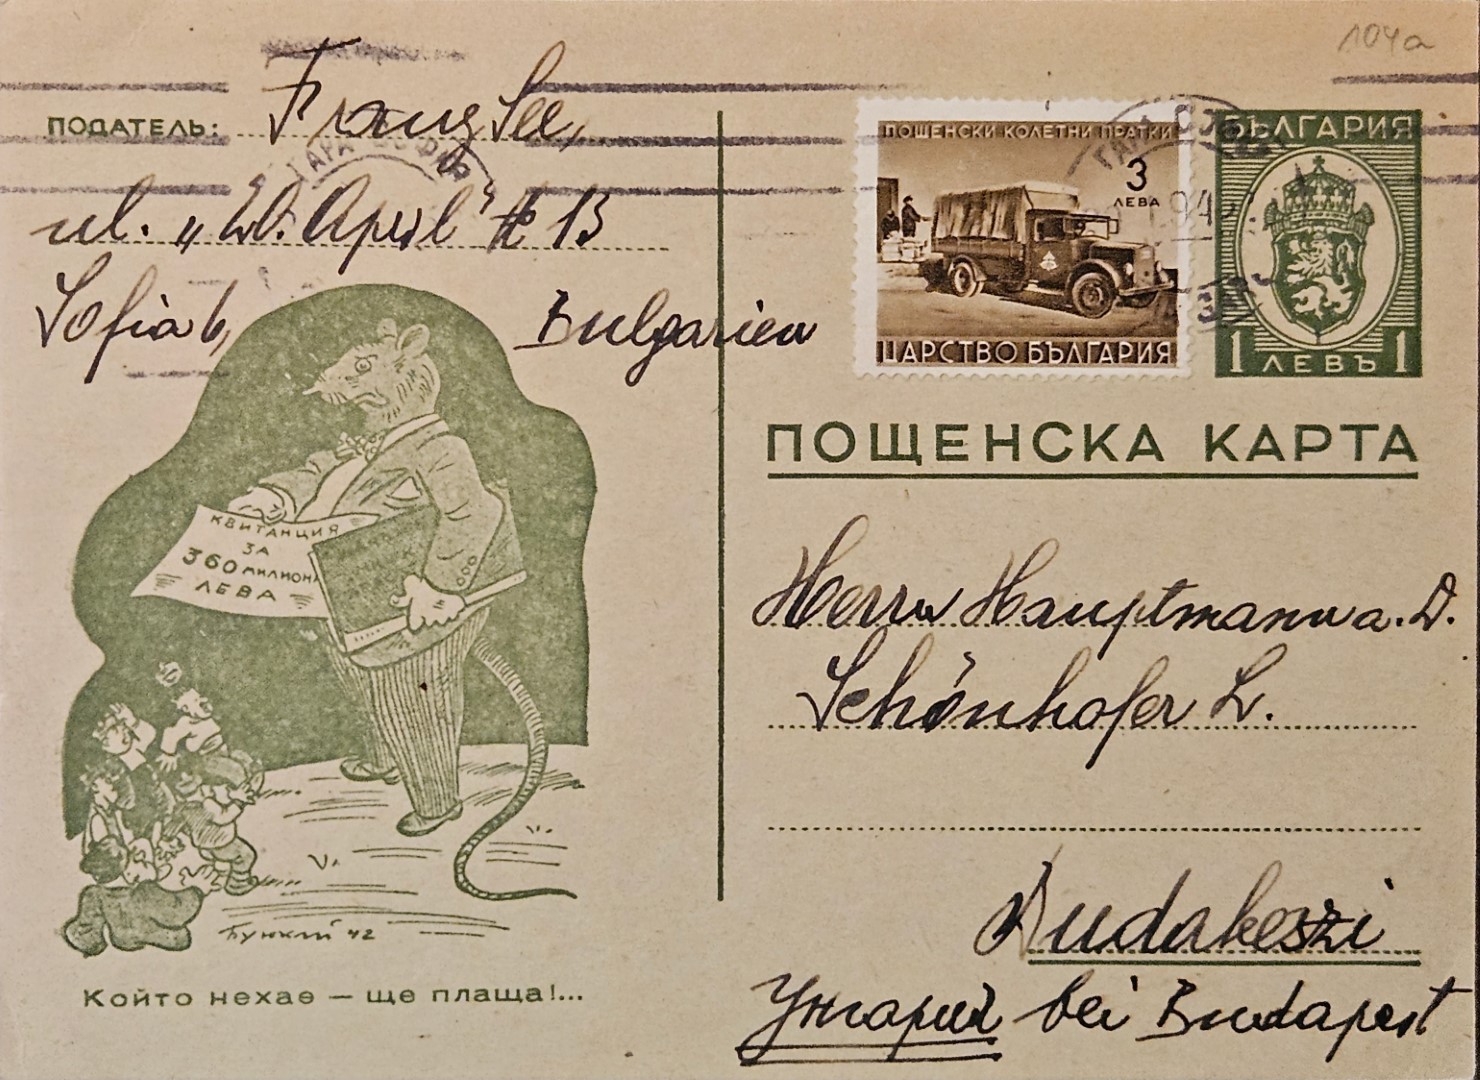 104a
ПОДАТЕЛЬ: Franz See,
ul. „20. April" № 13
Sofia 6, Bulgarien
ПОЩЕНСКИ КОЛЕТНИ ПРАТКИ
3
ЛЕВА
ЦАРСТВО БЪЛГАРИЯ
БЪЛГАРИЯ
1 ЛЕВЪ 1
ГАРА СОФИЯ
ПОЩЕНСКА КАРТА
КВИТАНЦИЯ
ЗА
360 МИЛИОНА
ЛЕВА
Бунклй 42
Който нехае — ще плаща!...
Herrn Hauptmann a. D.
Schönhofer L.
Budakeszi
Унгария bei Budapest